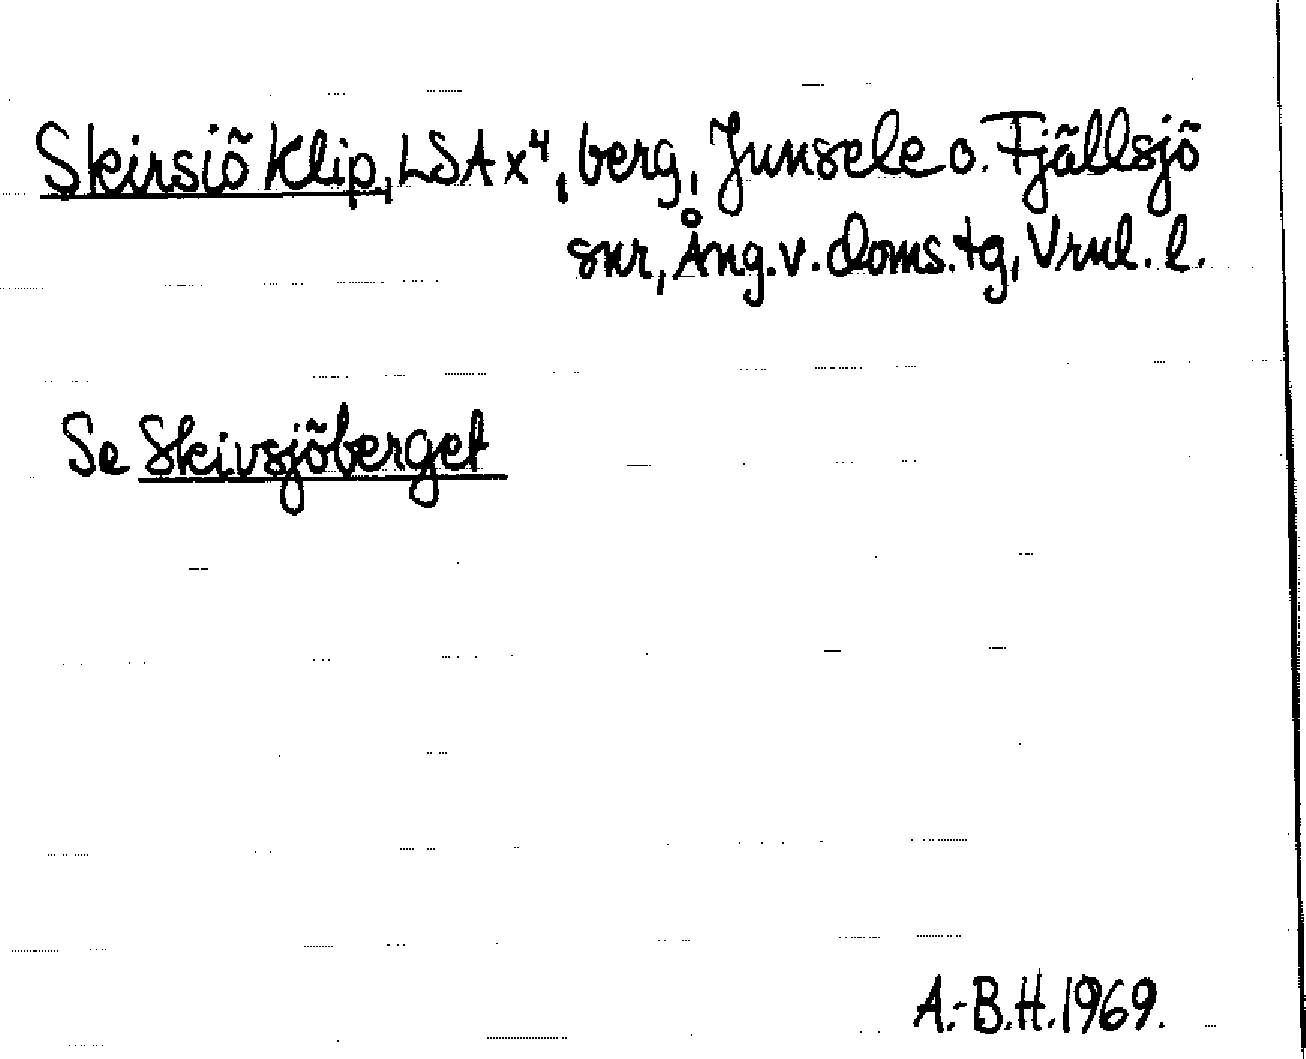 Skirsiö Klip, LSA x⁴, berg, Junsele o. Fjällsjö
snr, Ång. v. doms. tg, Vrnl. l.
Se Skivsjöberget
A.-B.H. 1969.